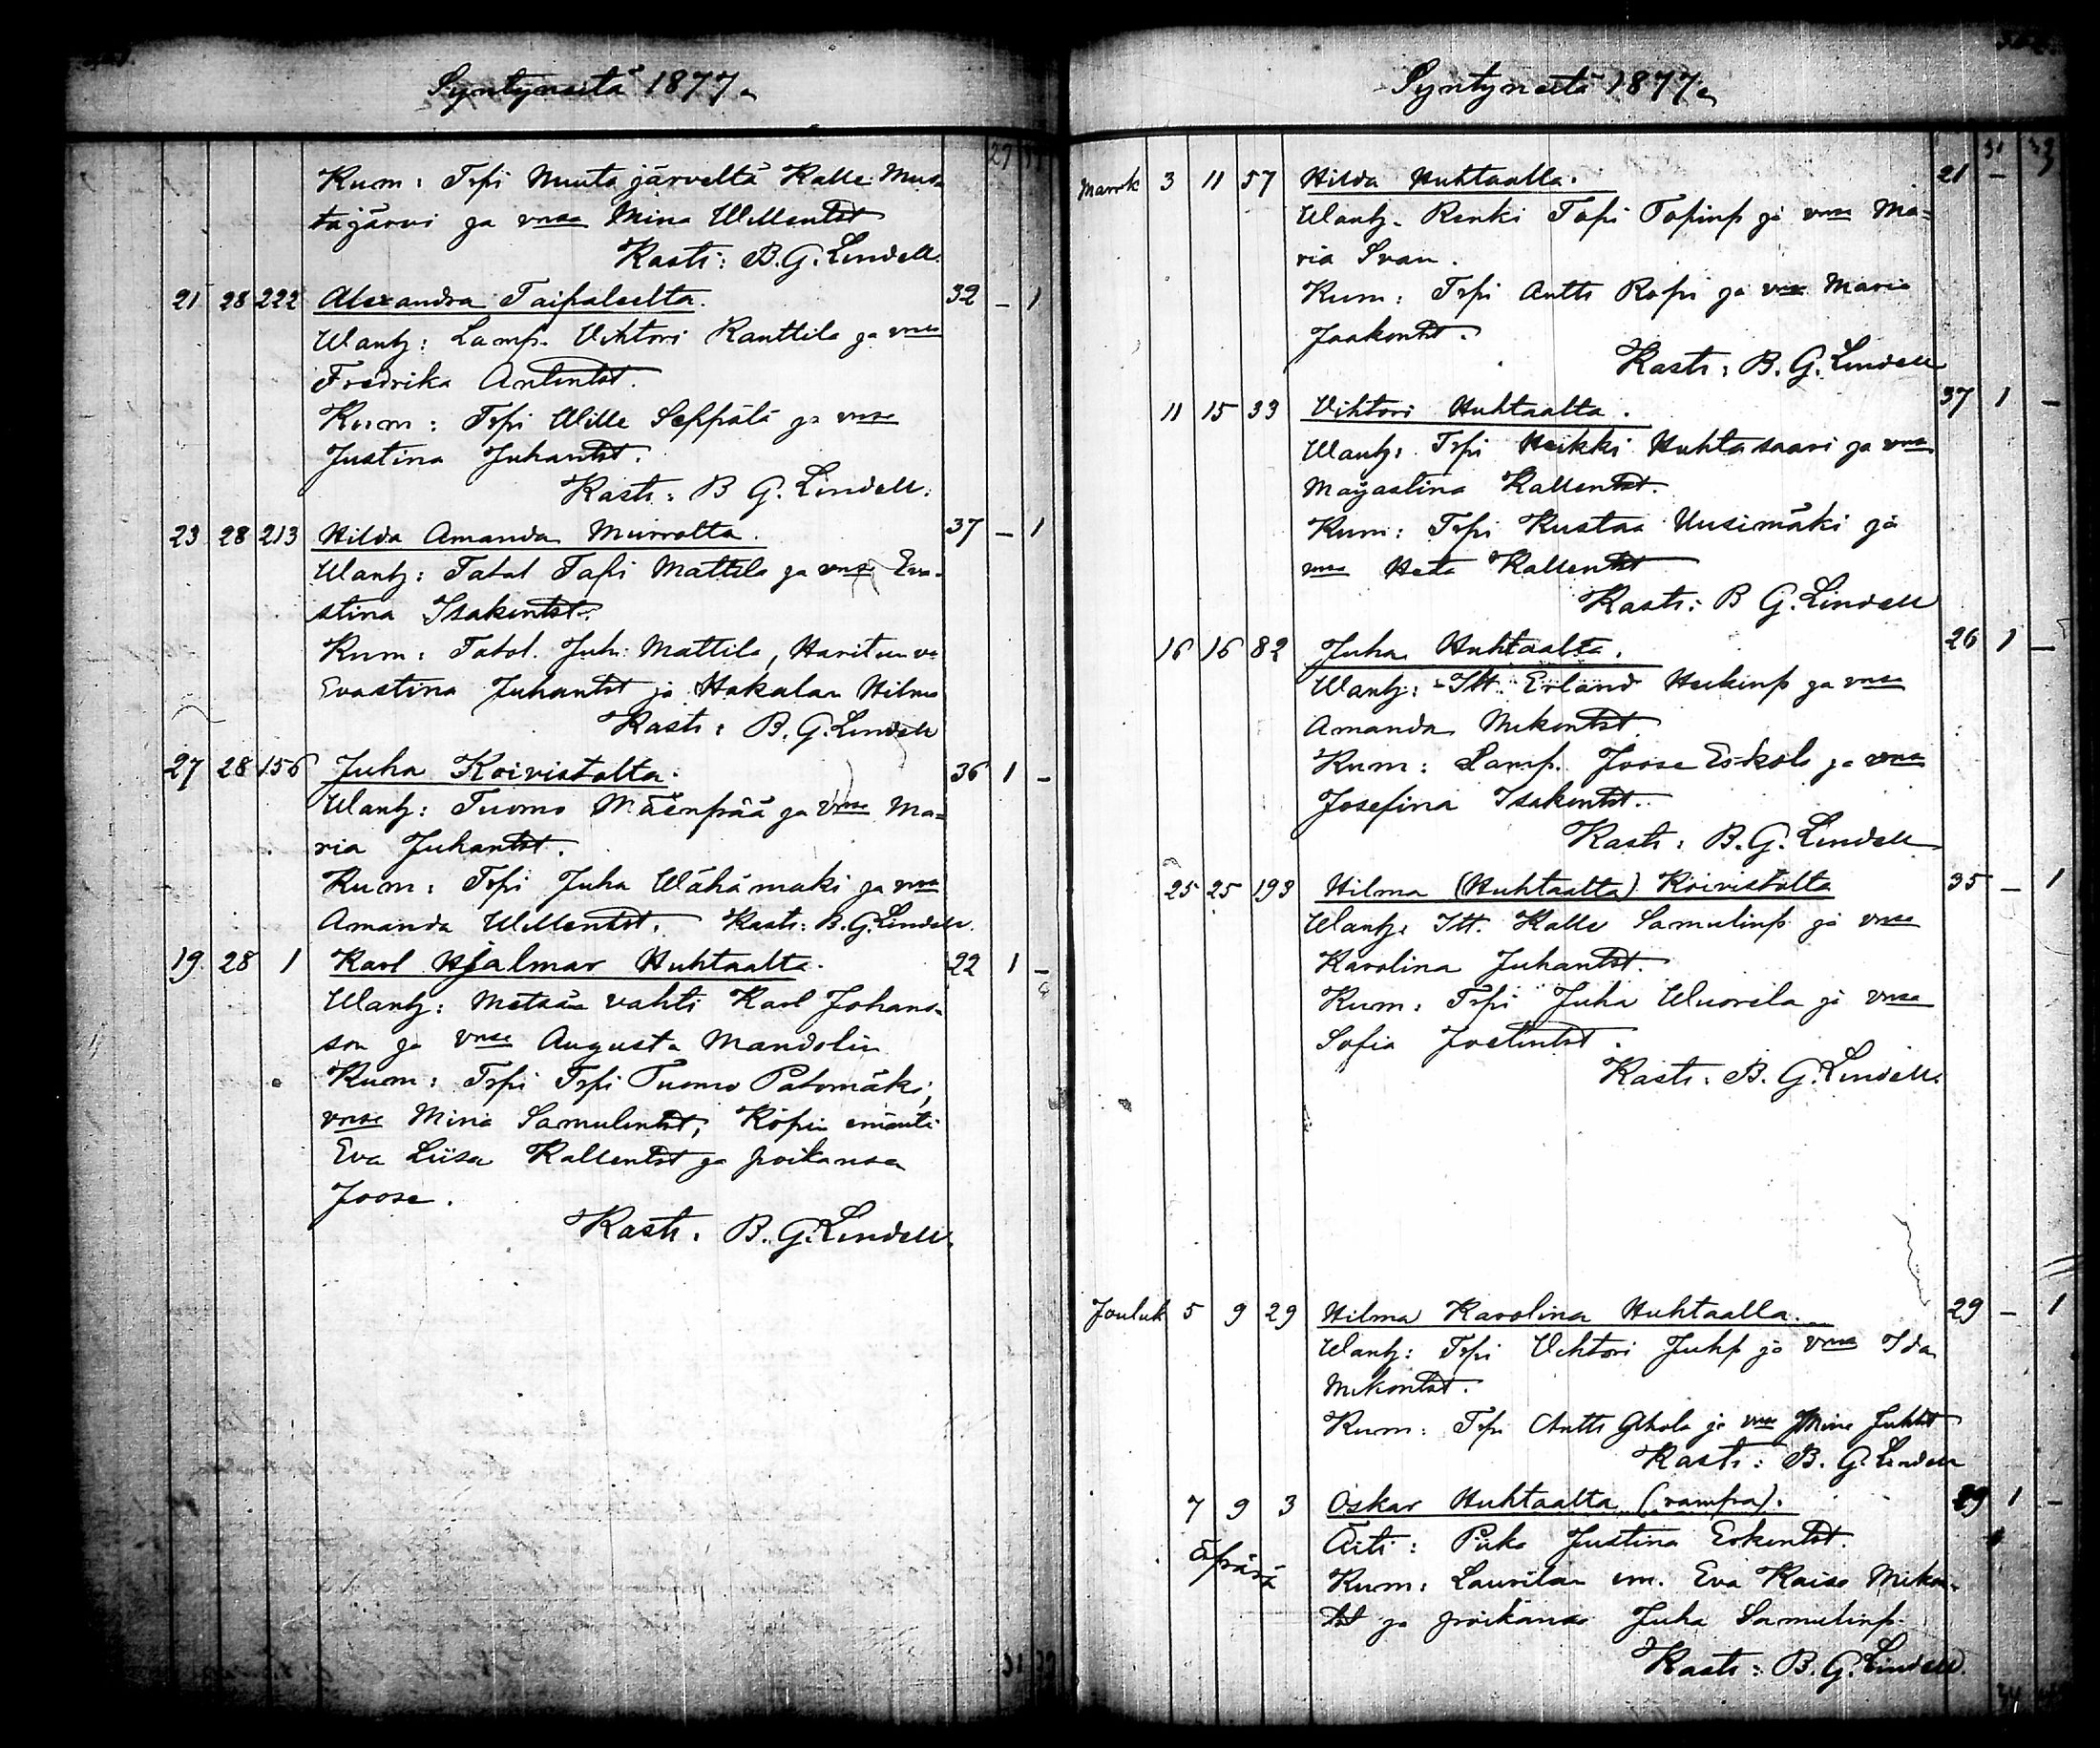 Syntyneitä 1877.
Kum: Trpi Mustajärveltä Kalle Mus-
tajärvi ja vmsa Mina Willentst
Kasti: B. G. Lindell.
21 28 222 Alexandra Taipaleelta. 32 – 1
Wanh: Lamp. Vihtori Ranttila ja vmsa
Fredrika Antintst.
Kum: Trpi Wille Seppälä ja vmsa
Justina Juhantst.
Kasti: B G. Lindell.
23 28 213 Hilda Amanda Murrolta. 37 – 1
Wanh: Tatol Tapi Mattila ja vmsa Eva-
stina Isakintst.
Kum: Tatol. Juh. Mattila, Haritun va
Evastina Juhantst ja Hakalan Hilma
Kasti: B. G. Lindell
27 28 156 Juha Koivistolta. 36 1 –
Wanh: Tuomo Mäenpää ja vmsa Ma-
ria Juhantst.
Kum: Trpi Juha Wähämäki ja vmsa
Amanda Willentst. Kasti: B. G. Lindell.
19. 28 1 Karl Hjalmar Huhtaalta. 22 1 –
Wanh: Metsän vahti Karl Johans-
son ja vmsa Augusta Mandolin
Kum: Trpi Trpi Tuomo Patomäki,
vmsa Mina Samulintst, Röpin emäntä
Eva Liisa Kallentst ja poikansa
Joose.
Kasti. B. G. Lindell.
Syntyneitä 1877.
Marrk 3 11 57 Hilda Huhtaalla. 21 –
Wanh. Renki Tapi Tapinp ja vmsa Ma-
ria Svan.
Kum: Trpi Antti Ropi ja vmsa Maria
Jaakontst.
Kasti: B. G. Lindell
11 15 33 Vihtori Huhtaalta. 37 1 –
Wanh: Trpi Heikki Huhtasaari ja vmsa
Majastina Kallentst.
Kum: Trpi Kustaa Uusimäki ja
vmsa Heta Kallentst
Kasti: B G. Lindell
16 16 82 Juha Huhtaalta. 26 1 –
Wanh: Itt. Erland Heikinp ja vmsa
Amanda Mikontst.
Kum: Lamp. Joose Eskola ja vmsa
Josefina Isakintst.
Kasti: B. G. Lindell
25 25 193 Hilma (Huhtaalta) Koivistolta 35 – 1
Wanh: Itt. Kalle Samulinp ja vmsa
Karolina Juhantst.
Kum: Trpi Juha Wuorela ja vmsa
Sofia Joelintst.
Kasti: B. G. Lindell.
Jouluk 5 9 29 Hilma Karolina Huhtaalla. 29 – 1
Wanh: Trpi Vihtori Juhp ja vmsa Ida
Mikontst.
Kum: Trpi Antti ja vmsa Mina Juhtst
Kasti: B. G. Lindell
7 9 3 Oskar Huhtaalta (rampa). 29 1 –
Äpärä
Äiti: Piika Justina Erkintst.
Kum: Laurilan em. Eva Kaisa Mikon-
tst ja poikansa Juha Samulinp.
Kasti: B. G. Lindell.